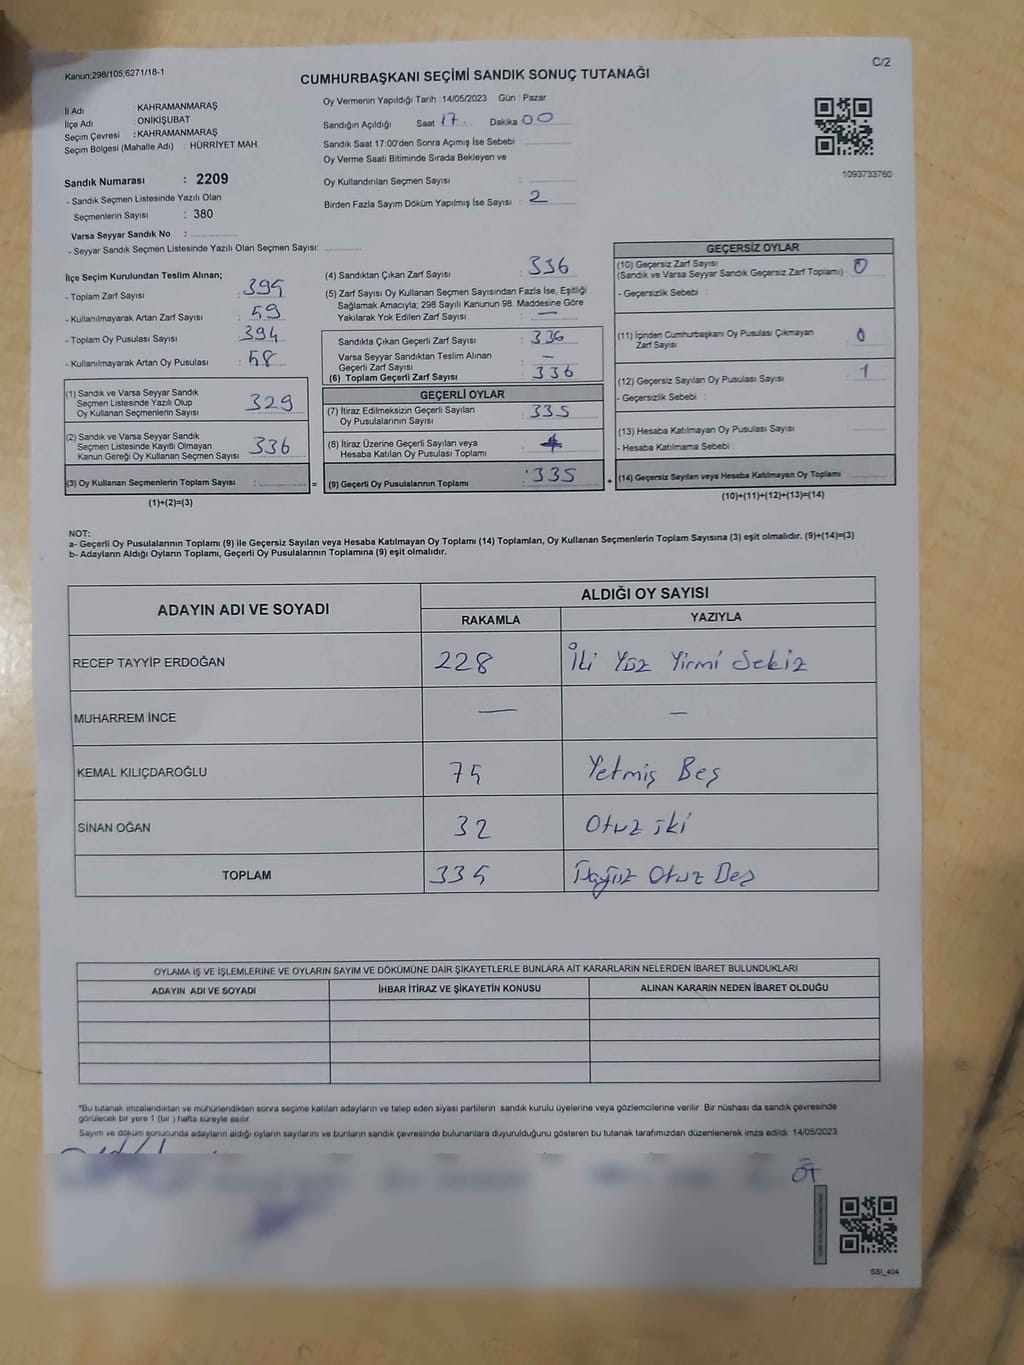 Kanun;298/105;6271/18-1
C/2
CUMHURBAŞKANI SEÇİMİ SANDIK SONUÇ TUTANAĞI
İl Adı : KAHRAMANMARAŞ
İlçe Adı : ONİKİŞUBAT
Seçim Çevresi : KAHRAMANMARAŞ
Seçim Bölgesi (Mahalle Adı) : HÜRRİYET MAH.
Oy Vermenin Yapıldığı Tarih : 14/05/2023 Gün : Pazar
Sandığın Açıldığı Saat 17 Dakika 00
Sandık Saat 17:00'den Sonra Açılmış İse Sebebi :
Oy Verme Saati Bitiminde Sırada Bekleyen ve
Oy Kullandırılan Seçmen Sayısı :
Birden Fazla Sayım Döküm Yapılmış İse Sayısı : 2
1093733760
Sandık Numarası : 2209
- Sandık Seçmen Listesinde Yazılı Olan
Seçmenlerin Sayısı : 380
Varsa Seyyar Sandık No :
- Seyyar Sandık Seçmen Listesinde Yazılı Olan Seçmen Sayısı:
İlçe Seçim Kurulundan Teslim Alınan;
- Toplam Zarf Sayısı : 395
- Kullanılmayarak Artan Zarf Sayısı : 59
- Toplam Oy Pusulası Sayısı : 394
- Kullanılmayarak Artan Oy Pusulası : 58
(1) Sandık ve Varsa Seyyar Sandık
Seçmen Listesinde Yazılı Olup
Oy Kullanan Seçmenlerin Sayısı : 329
(2) Sandık ve Varsa Seyyar Sandık
Seçmen Listesinde Kayıtlı Olmayan
Kanun Gereği Oy Kullanan Seçmen Sayısı : 336
(3) Oy Kullanan Seçmenlerin Toplam Sayısı :
(1)+(2)=(3)
(4) Sandıktan Çıkan Zarf Sayısı : 336
(5) Zarf Sayısı Oy Kullanan Seçmen Sayısından Fazla İse, Eşitliği
Sağlamak Amacıyla; 298 Sayılı Kanunun 98. Maddesine Göre
Yakılarak Yok Edilen Zarf Sayısı : —
Sandıkta Çıkan Geçerli Zarf Sayısı : 336
Varsa Seyyar Sandıktan Teslim Alınan
Geçerli Zarf Sayısı : —
(6) Toplam Geçerli Zarf Sayısı : 336
GEÇERLİ OYLAR
(7) İtiraz Edilmeksizin Geçerli Sayılan
Oy Pusulalarının Sayısı : 335
(8) İtiraz Üzerine Geçerli Sayılan veya
Hesaba Katılan Oy Pusulası Toplamı :
= (9) Geçerli Oy Pusulalarının Toplamı : 335
GEÇERSİZ OYLAR
(10) Geçersiz Zarf Sayısı
(Sandık ve Varsa Seyyar Sandık Geçersiz Zarf Toplamı) : 0
- Geçersizlik Sebebi :
(11) İçinden Cumhurbaşkanı Oy Pusulası Çıkmayan
Zarf Sayısı : 0
(12) Geçersiz Sayılan Oy Pusulası Sayısı : 1
- Geçersizlik Sebebi :
(13) Hesaba Katılmayan Oy Pusulası Sayısı :
- Hesaba Katılmama Sebebi :
+ (14) Geçersiz Sayılan veya Hesaba Katılmayan Oy Toplamı
(10)+(11)+(12)+(13)=(14)
NOT:
a- Geçerli Oy Pusulalarının Toplamı (9) ile Geçersiz Sayılan veya Hesaba Katılmayan Oy Toplamı (14) Toplamları, Oy Kullanan Seçmenlerin Toplam Sayısına (3) eşit olmalıdır. (9)+(14)=(3)
b- Adayların Aldığı Oyların Toplamı, Geçerli Oy Pusulalarının Toplamına (9) eşit olmalıdır.
ADAYIN ADI VE SOYADI
ALDIĞI OY SAYISI
RAKAMLA YAZIYLA
RECEP TAYYİP ERDOĞAN 228 İki Yüz Yirmi Sekiz
MUHARREM İNCE — —
KEMAL KILIÇDAROĞLU 75 Yetmiş Beş
SİNAN OĞAN 32 Otuz iki
TOPLAM 335 Otuz Beş
OYLAMA İŞ VE İŞLEMLERİNE VE OYLARIN SAYIM VE DÖKÜMÜNE DAİR ŞİKAYETLERLE BUNLARA AİT KARARLARIN NELERDEN İBARET BULUNDUKLARI
ADAYIN ADI VE SOYADI İHBAR İTİRAZ VE ŞİKAYETİN KONUSU ALINAN KARARIN NEDEN İBARET OLDUĞU
*Bu tutanak imzalandıktan ve mühürlendikten sonra seçime katılan adayların ve talep eden siyasi partilerin sandık kurulu üyelerine veya gözlemcilerine verilir. Bir nüshası da sandık çevresinde
görülecek bir yere 1 (bir ) hafta süreyle asılır
Sayım ve döküm sonucunda adayların aldığı oyların sayılarını ve bunların sandık çevresinde bulunanlara duyurulduğunu gösteren bu tutanak tarafımızdan düzenlenerek imza edildi. 14/05/2023
SSI_404